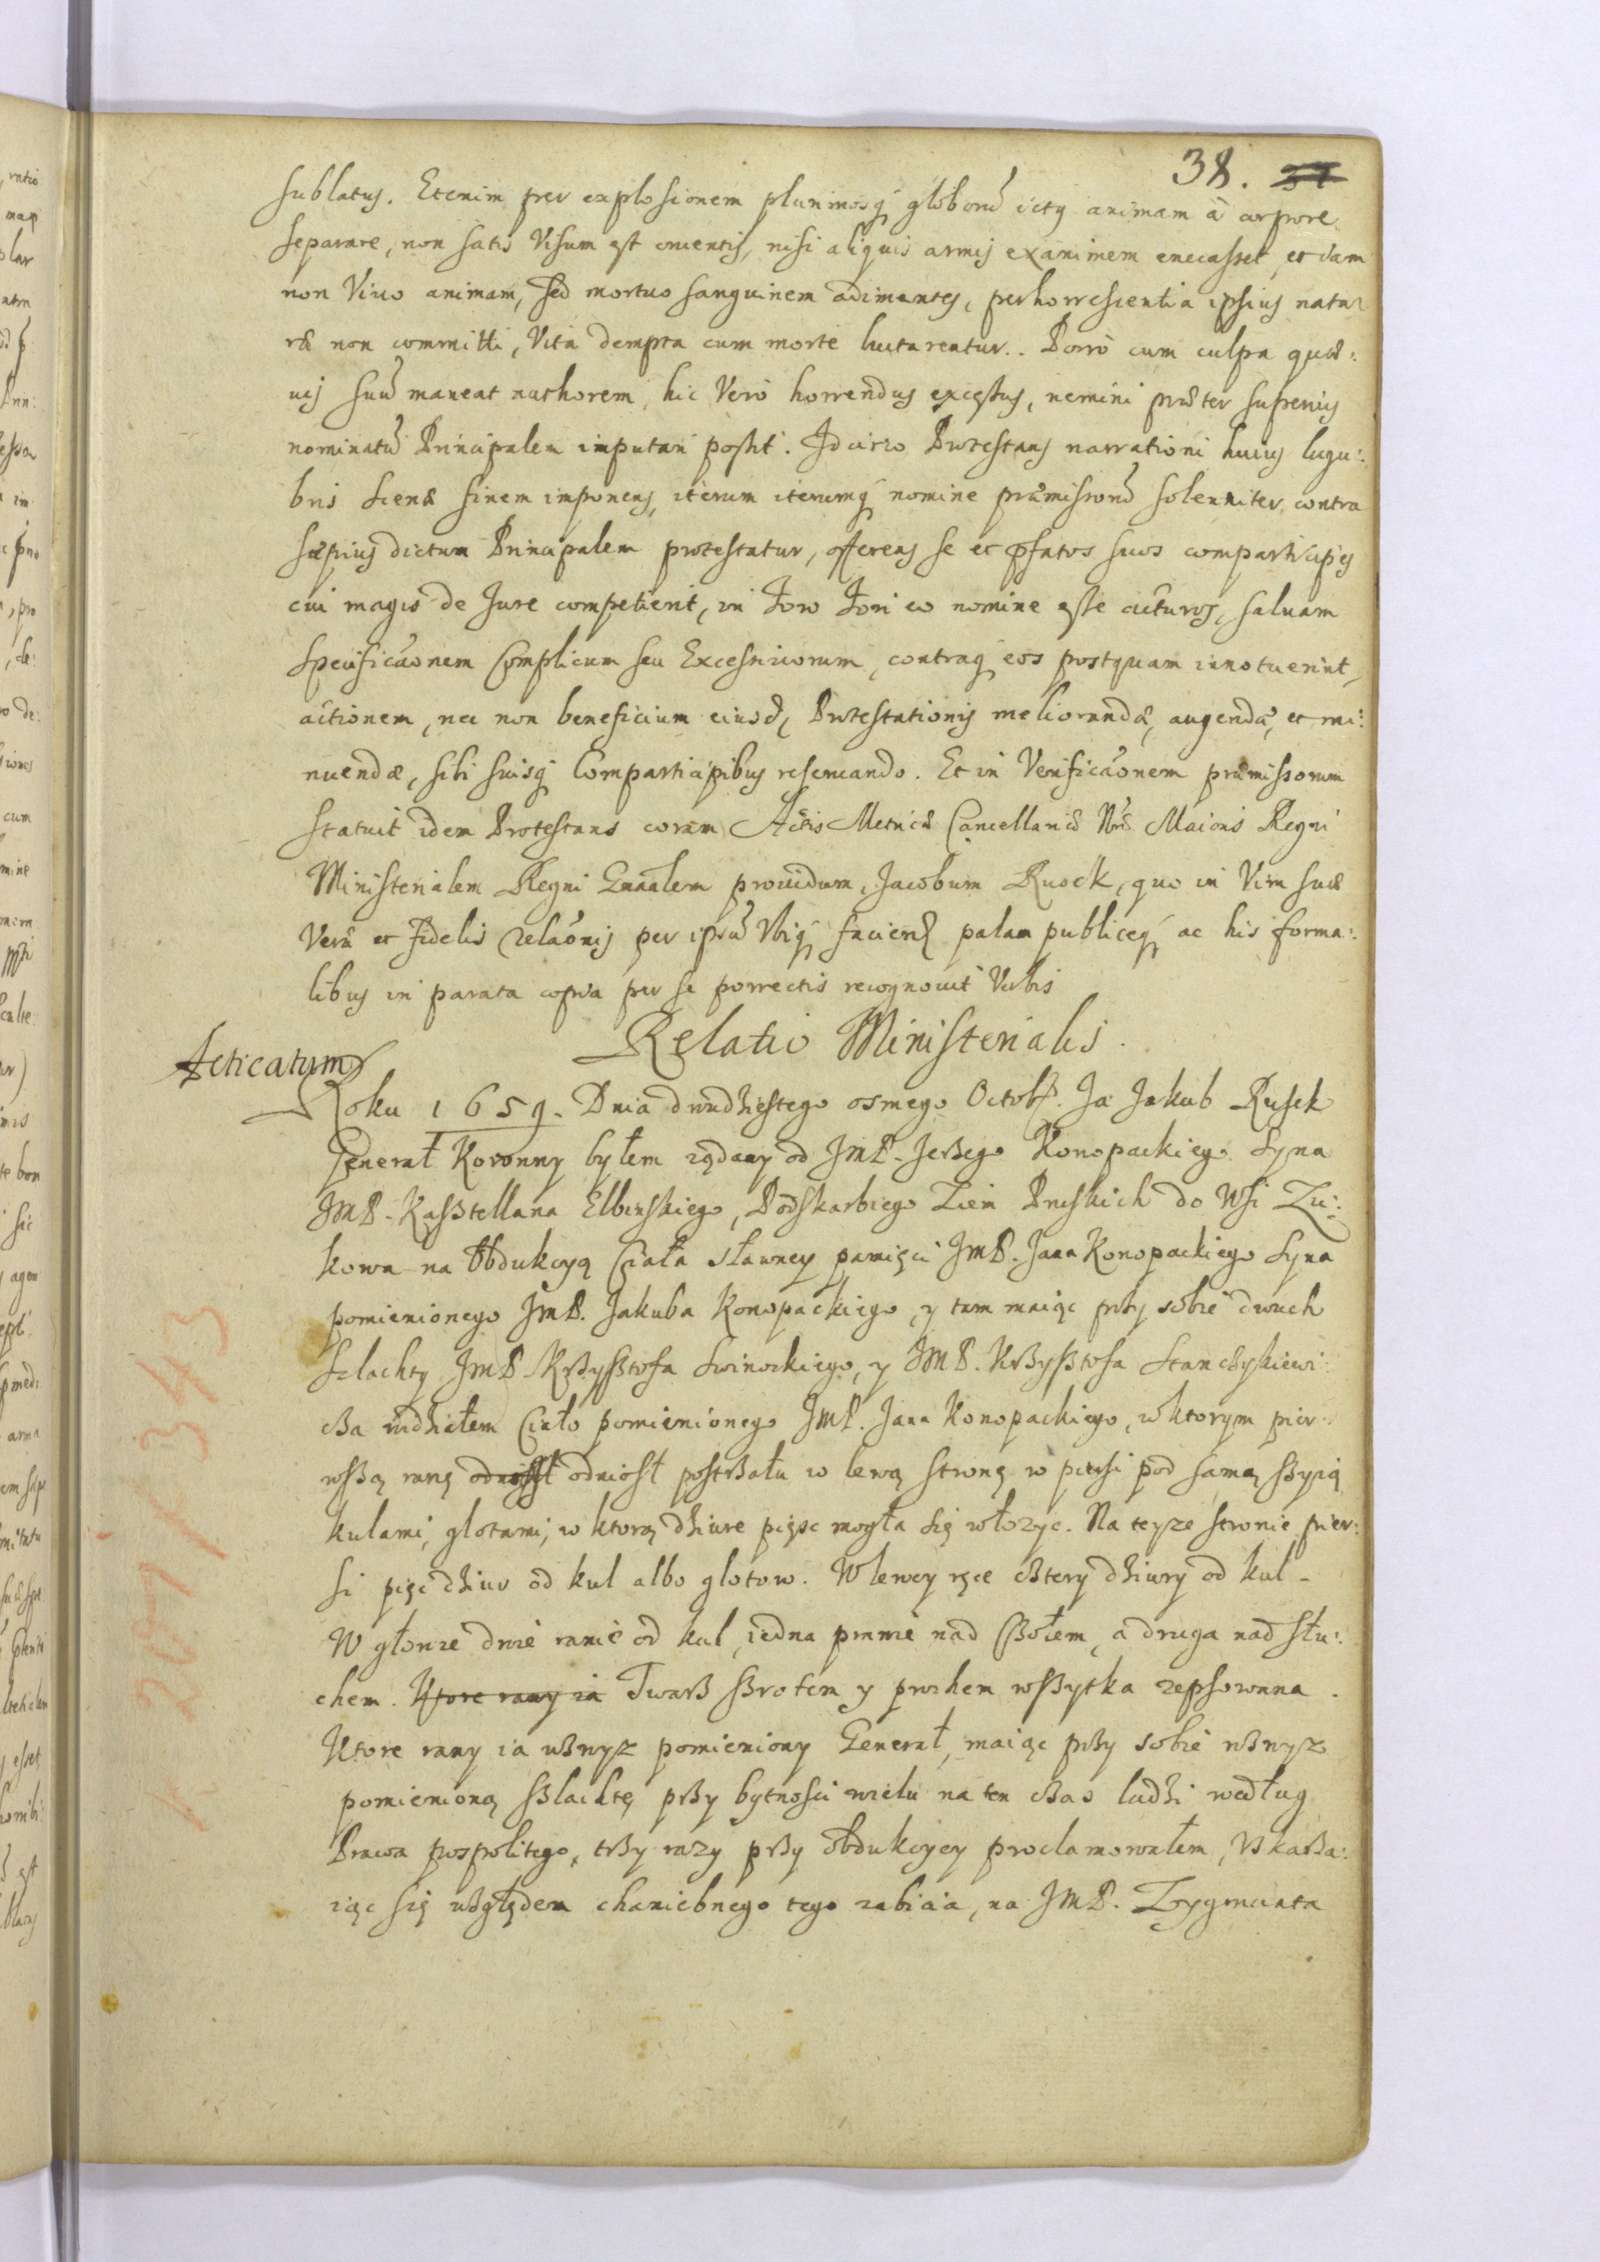 38. 37
sublatus. Etenim per explosionem plurimosq́ globorũ ictq animam à corpore
separare, non satis Visum est cruentis, nisi aliquis armis exanimem enecasset, et iam
non Viuo animam, sed mortuo sanguinem adimentes, perhorrescentia ipsius natu
ræ non committi, Vita dempta cum morte luctarentur. Porrò cum culpa quæ:
uis suũ maneat authorem, hic Verò horrendus excessus, nemini præter superius
nominatũ Principalem imputari possit. Idcirco Protestans narrationi huius lugu:
bris scenæ finem imponens, iterum iterumq́ nomine præmissorũ solenniter contra
sæpius dictum Principalem protestatur, offerens se et pfatos suos comparticipes
cui magis de Jure competierit, in Foro Fori eo nomine esse acturos, saluam
specificãonem Complicum seu Excessiuorum, contraq eos postquam innotuerint,
actionem, nec non beneficium eiusd, Protestationis meliorandæ, augendæ, et mi:
nuendæ, sibi suisq́ Comparticipibus reseruando. Et in Verificãonem præmissorum
statuit idem Protestans coram Actis Metricæ Cancellariæ Nræ Maioris Regni
Ministerialem Regni Gnãlem prouidum, Jacobum Rusek, quo in Vim suæ
Veræ et fidelis relãonis per ipsũ Vbiq́ faciend palam publiceq́ ac his forma:
libus in parata copia per se porrectis recognouit Verbis
Relatio Ministerialis.
Acticatum
Roku 1659. Dnia dwudziestego osmego Octobr. Ja Jakub Rusek
Generał Koronny byłem ządany od JMP. Jerzego Konopackiego Syna
JMP. Kasztellana Elbinskiego, Podskarbiego Ziem Pruskich do Wsi Zu:
kowa na Obdukcyą Ciała sławney pamięci JMP. Jana Konopackiego Syna
pomienionego JMP. Jakuba Konopackiego, y tam maiąc przy sobie dwuch
Szlachty JMP. Krzysztofa Swinorkiego, y JMP. Krzysztofa Stanczykiewi:
cza widziałem Ciało pomienionego JMP. Jana Konopackiego, w ktorym pier:
wszą ranę odniosł odniosł postrzału w lewą stronę w piersi pod samą szyią
kulami, glotami, w ktorą dziure pięsc mogła się włozyc. Na teyze stronie pier:
si pięc dziur od kul albo glotow. W lewey ręce cztery dziury od kul.
W głowie dwie ranie od kul, iedna prawie nad Czołem, a druga nad słu:
chem. Ktore rany ia Twarz szrotem y prochem wszytka zepsowana.
Ktore rany ia wzwysz pomieniony Generał, maiąc przy sobie wzwysz
pomienioną szlachtę przy bytnosci wielu na ten czas ludzi według
Prawa pospolitego, trzy razy przy obdukcyey proclamowałem, Vskarza:
iąc się względem chaniebnego tego zabicia, na JMP. Zygmunta